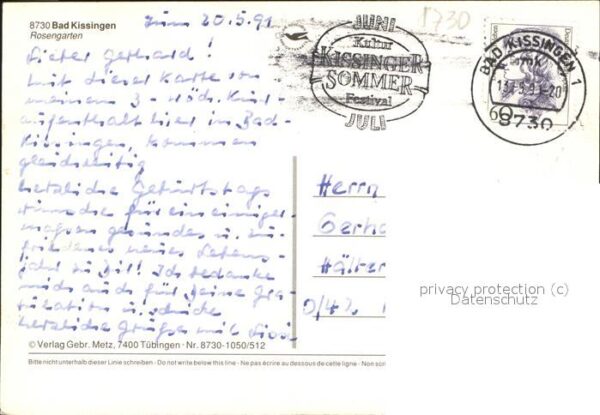 8730 Bad Kissingen
Rosengarten
zum 20.5.91
1730
JUNI
Kultur
KISSINGER
SOMMER
Festival
JULI
BAD KISSINGEN 1
60
8730
Lieber Gerhard!
Mit dieser Karte von
meinem 3-wöch. Kur-
aufenthalt hier in Bad-
Kissingen, kommen
gleichzeitig
herzliche Geburtstags
wünsche für ein einiger-
massen gesundes u. zu-
friedenes neues Lebens-
jahr zu Dir! Ich bedanke
mich auch für Deine Gra-
tulation u. schicke
herzliche Grüße mit
Herrn
Gerha
Hälter
privacy protection (c)
Datenschutz
© Verlag Gebr. Metz, 7400 Tübingen · Nr. 8730-1050/512
Bitte nicht unterhalb dieser Linie schreiben - Do not write below this line - Ne pas écrire au dessous de cette ligne - Non